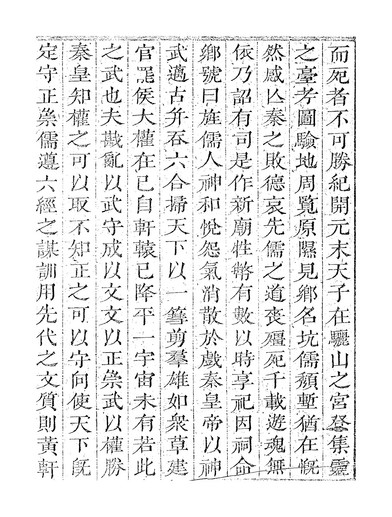 而死者不可勝紀開元末天子在驪山之宮登集靈
之臺考圖驗地周覽原隰見鄉名坑儒頹塹猶在慨
然感亾秦之敗德哀先儒之道喪殭死千載遊魂無
依乃詔有司是作新廟牲幣有數以時享祀因祠命
鄉號曰旌儒人神和悅怨氣消散於戲秦皇帝以神
武邁古并吞六合掃天下以一篲剪羣雄如衆草建
官罷侯大權在已自軒轅已降平一宇宙未有若此
之武也夫戡亂以武守成以文文以正崇武以權勝
秦皇知權之可以取不知正之可以守向使天下既
定守正崇儒遵六經之謀訓用先代之文質則黃軒